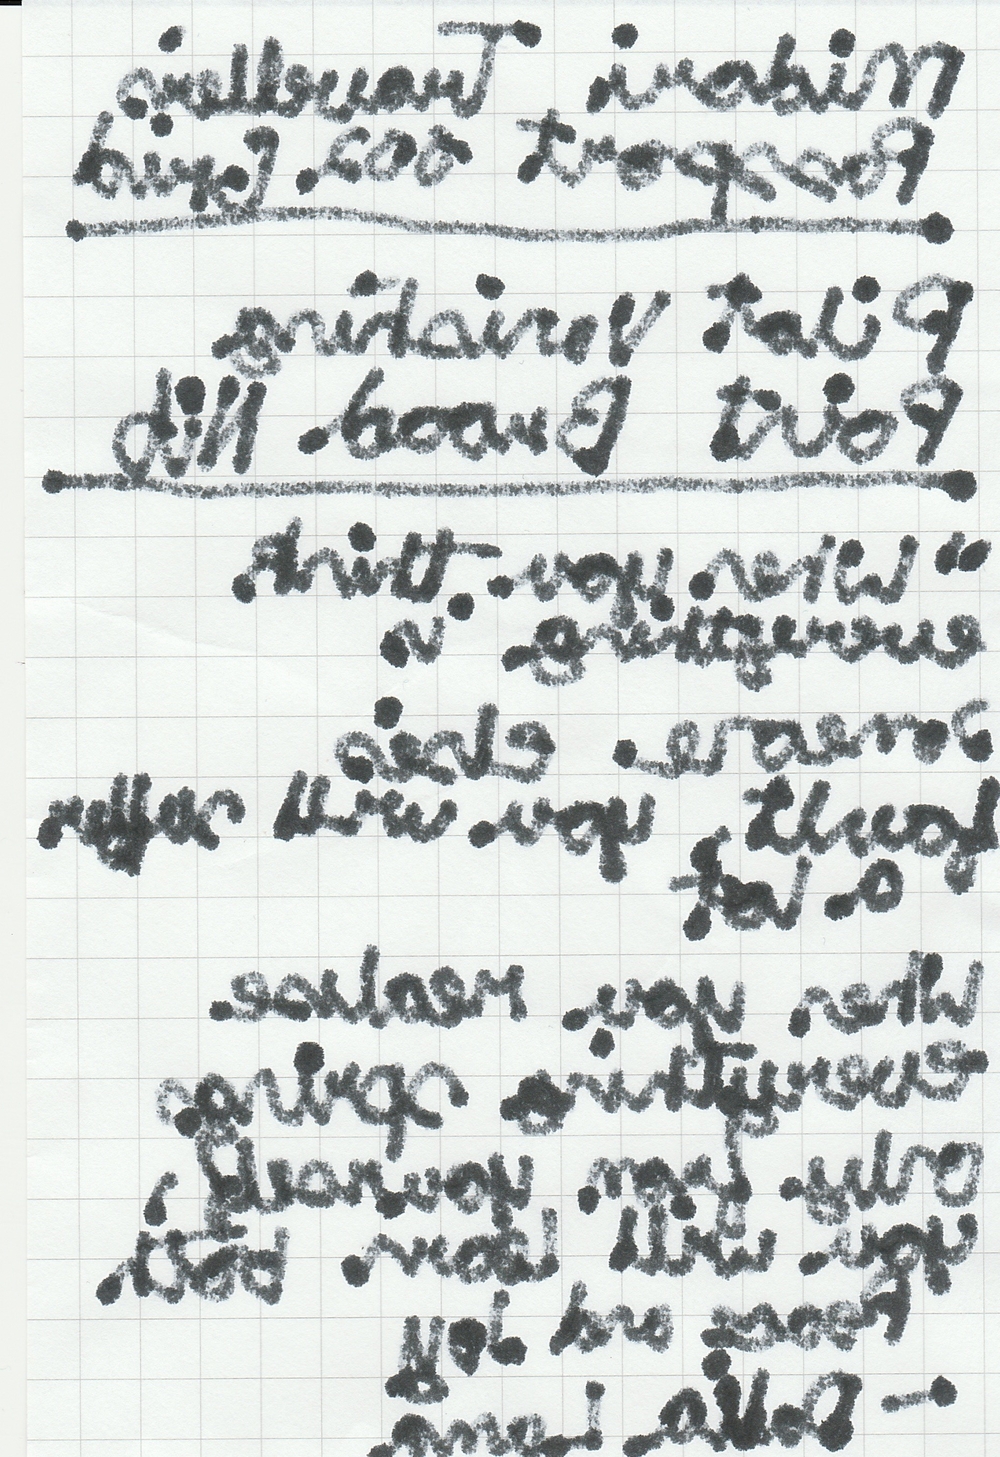 Midori Traveller's
Passport 005. Grid
Pilot
Point Broad. Nib
"When you think
everything is
someone else's
fault, you will suffer
a lot.
When you realize
everything springs
only from yourself,
you will learn both
Peace and Joy
- Dalai Lama